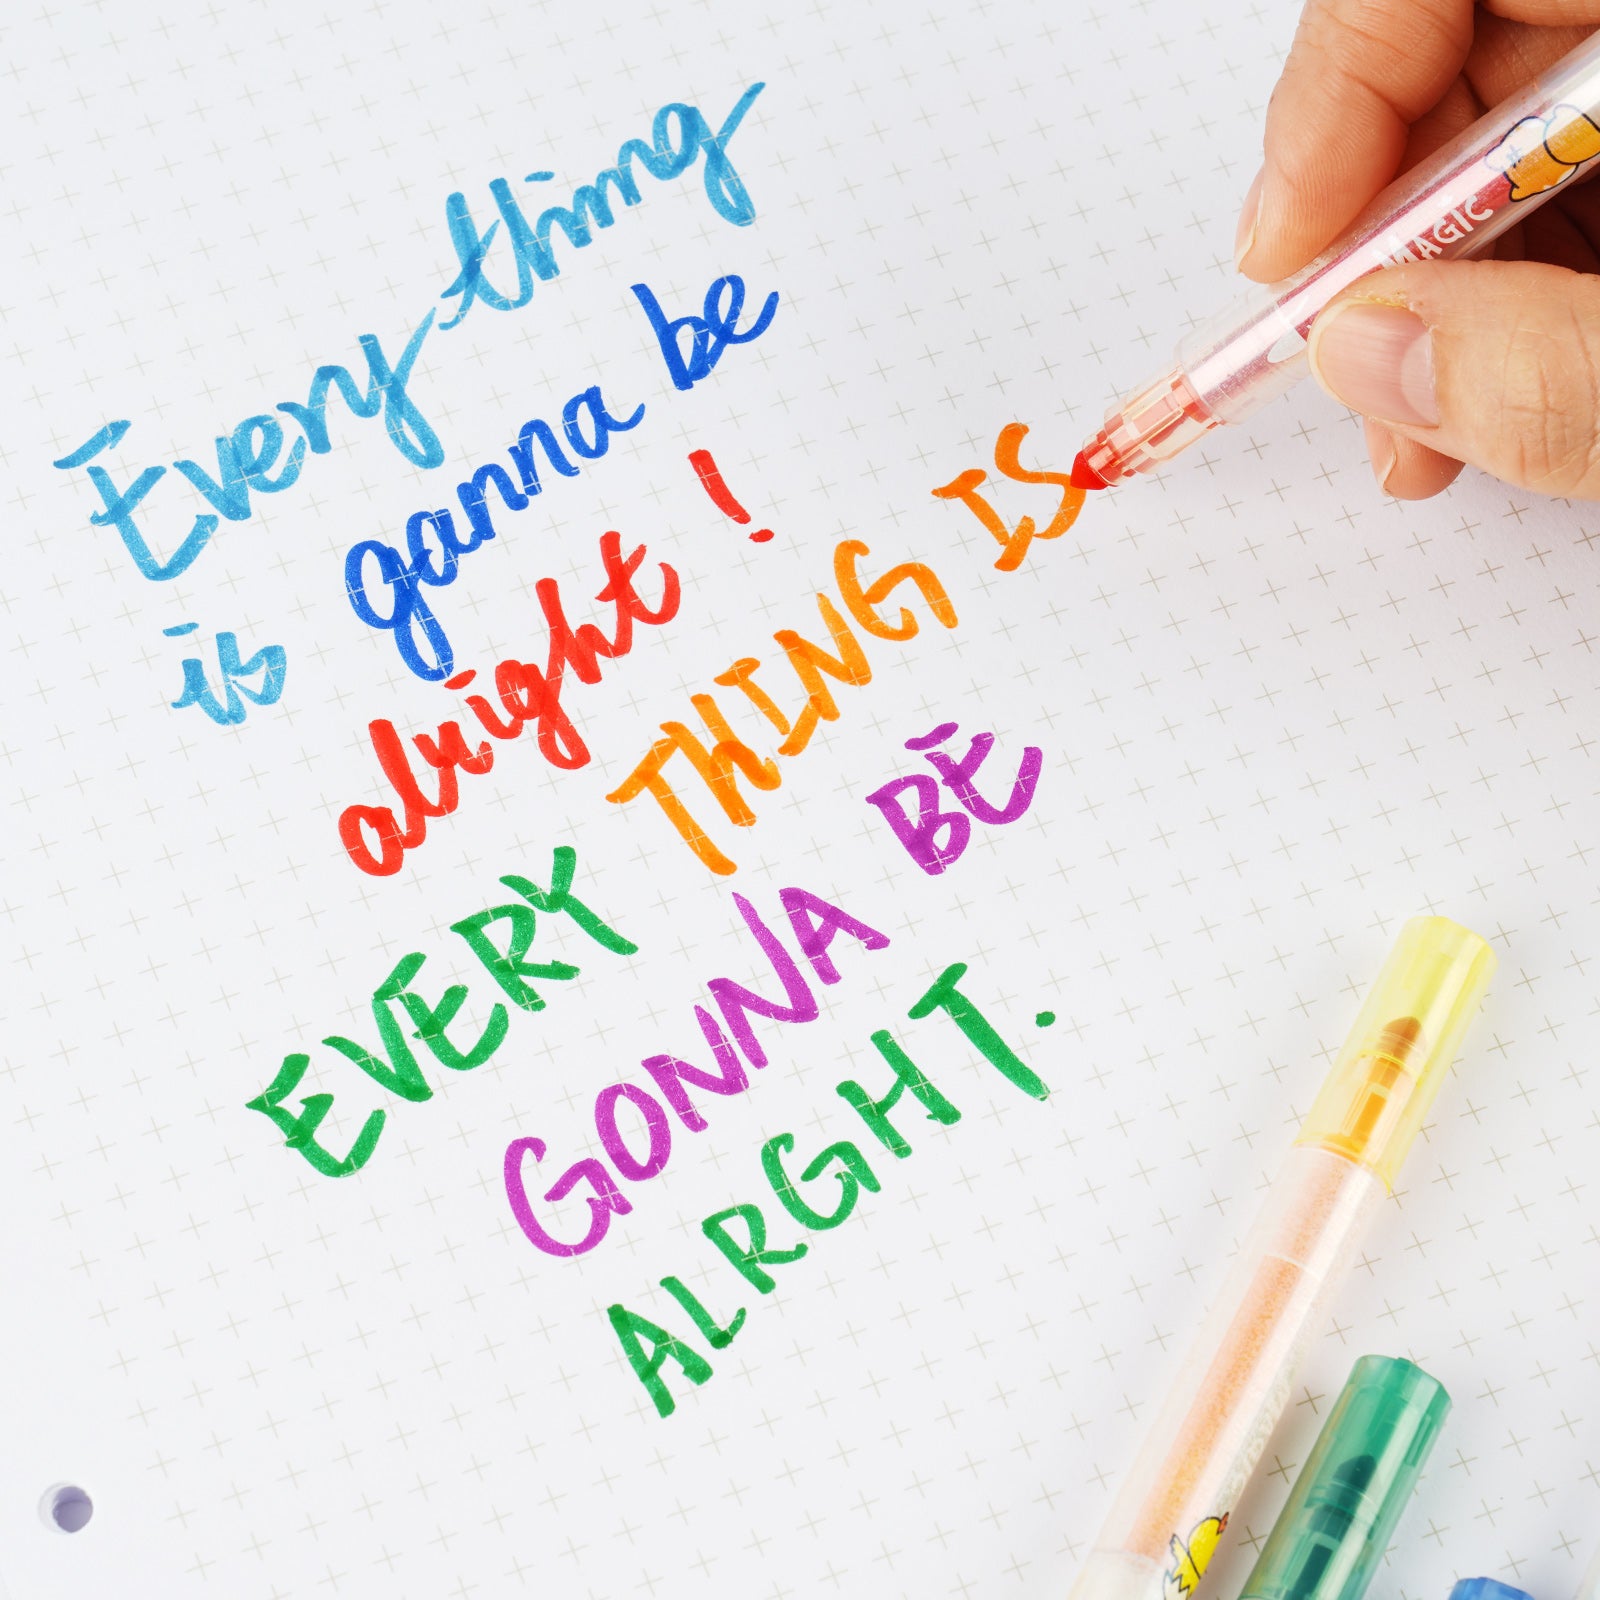 Everything
is ganna be
alright !
EVERY THING IS
GONNA BE
ALRGHT.
MAGIC